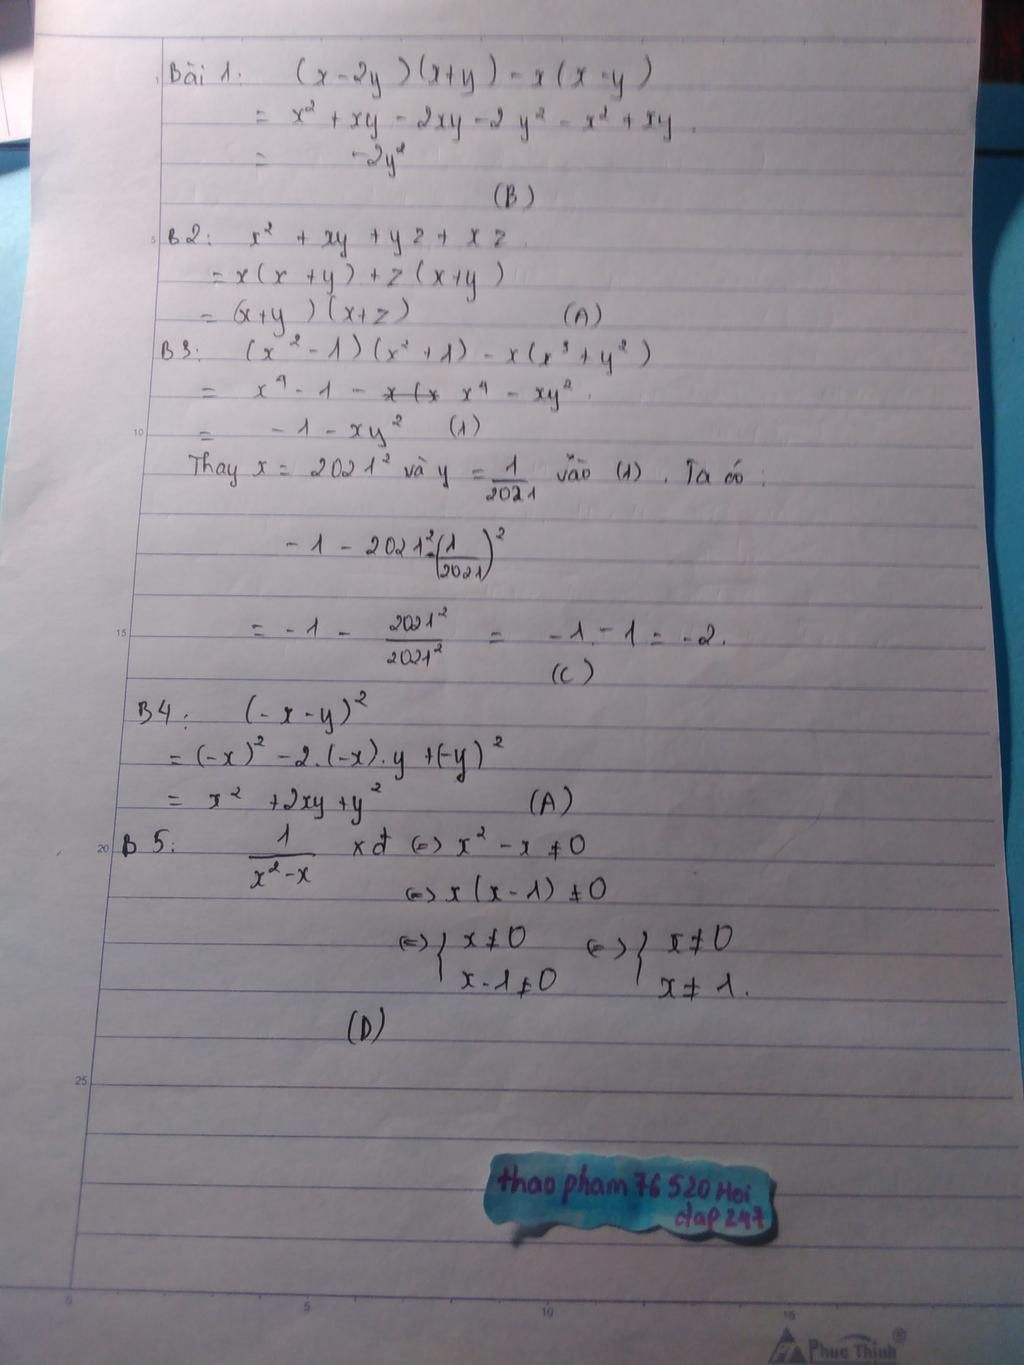 Bài 1: (x - 2y)(x+y) - x(x-y)
= x² + xy - 2xy - 2y² - x² + xy.
= -2y²
(B)
B2: x² + xy + yz + xz.
= x(x+y) + z(x+y)
= (x+y)(x+z) (A)
B3: (x² - 1)(x² + 1) - x(x³ + y²)
= x⁴ - 1 - x(x x⁴ - xy².
= -1 - xy² (1)
Thay x = 2021² và y = 1/2021 vào (1). Ta có:
-1 - 2021².(1/2021)²
= -1 - 2021²/2021² = -1 - 1 = -2.
(C)
B4: (-x-y)²
= (-x)² - 2.(-x).y + (-y)²
= x² + 2xy + y² (A)
B5: 1/(x²-x) xđ (=) x² - x ≠ 0
(=) x(x-1) ≠ 0
(=) { x ≠ 0 (=) { x ≠ 0
x-1 ≠ 0 x ≠ 1.
(D)
thao pham 76 520 Hoi
dap 247
Phuc Thinh®
5
10
15
20
25
0 5 10 15